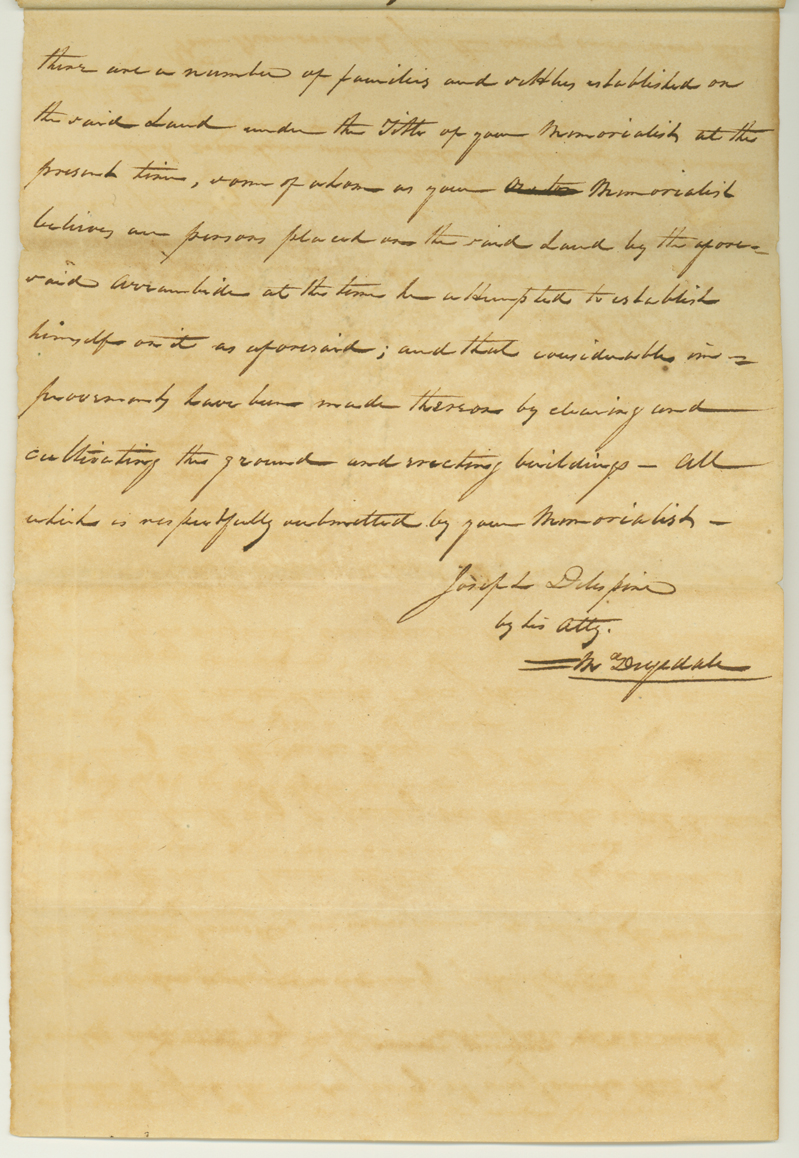 there are a number of families and settlers established on
the said Land under the Title of your Memorialist at the
present time, some of whom as your Memorialist
believes are persons placed on the said Land by the afore=
said Arrambide at the time he attempted to establish
himself on it as aforesaid; and that considerable im=
provements have been made thereon by clearing and
cultivating the ground and erecting buildings — All
which is respectfully submitted by your Memorialist —
Joseph Delespine
by his Atty.
Drysdale